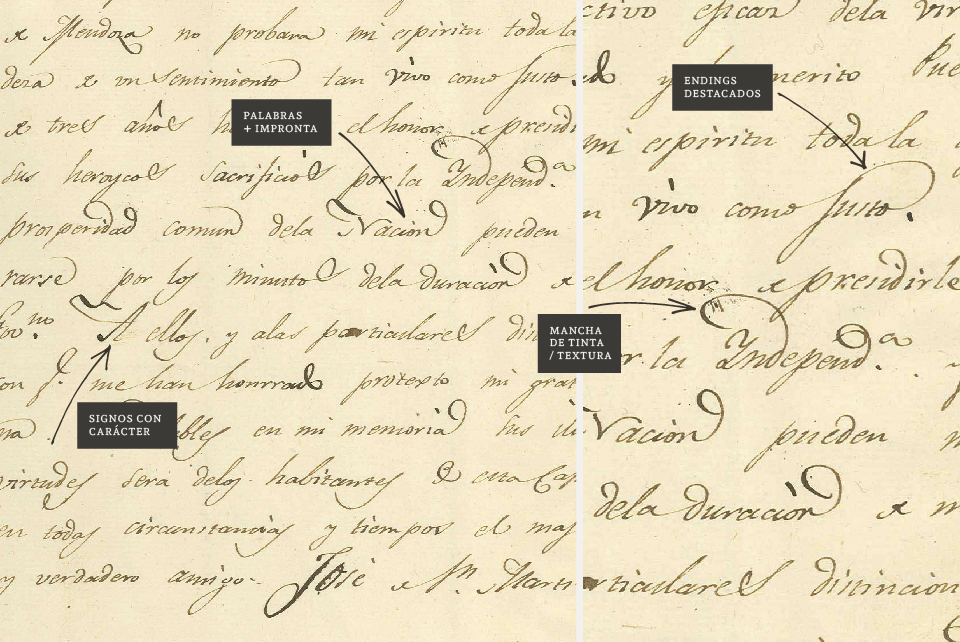 a Mendoza no probara mi espiritu toda la
dera a un sentimiento tan vivo como justo.
a tres años el honor a prendi
PALABRAS
+ IMPRONTA
sus heroycos sacrificios por la Independ.a
prosperidad comun dela Nacion pueden
rarse por los minutos dela duración a
A ellos. y alas particulares
me han honrrado protexto mi grat
SIGNOS CON
CARÁCTER
en mi memoria sus
virtudes será delos habitantes esta Cap
en todas circunstancias y tiempos el mas
y verdadero amigo. José Sn. Marti
ctivo eficaz dela vir
y merito Pue
ENDINGS
DESTACADOS
mi espiritu toda la
n vivo como justo.
el honor a prendirle
MANCHA
DE TINTA
/ TEXTURA
r la Independ.a
Nacion pueden
dela duración a
rticulares distincion